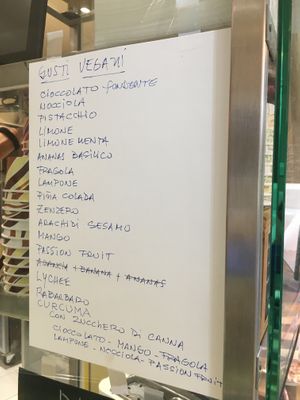 GUSTI VEGANI
CIOCCOLATO FONDENTE
NOCCIOLA
PISTACCHIO
LIMONE
LIMONE MENTA
ANANAS BASILICO
FRAGOLA
LAMPONE
PIÑA COLADA
ZENZERO
ARACHIDI SESAMO
MANGO
PASSION FRUIT
ARANCIA + BANANA + ANANAS
LYCHEE
RABARBARO
CURCUMA
CON ZUCCHERO DI CANNA
CIOCCOLATO - MANGO - FRAGOLA
LAMPONE - NOCCIOLA - PASSION FRUIT